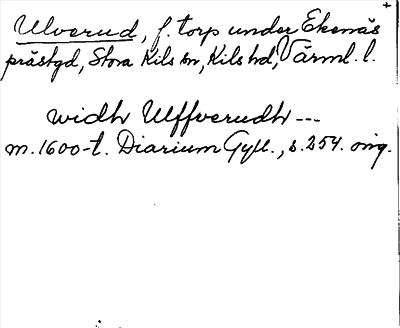 Ulverud, f. torp under Ekenäs
prästgd, Stora Kils sn, Kils hd, Värml. l.
widh Ulffverudh ---
m. 1600-t. Diarium Gyll., s. 254. orig.